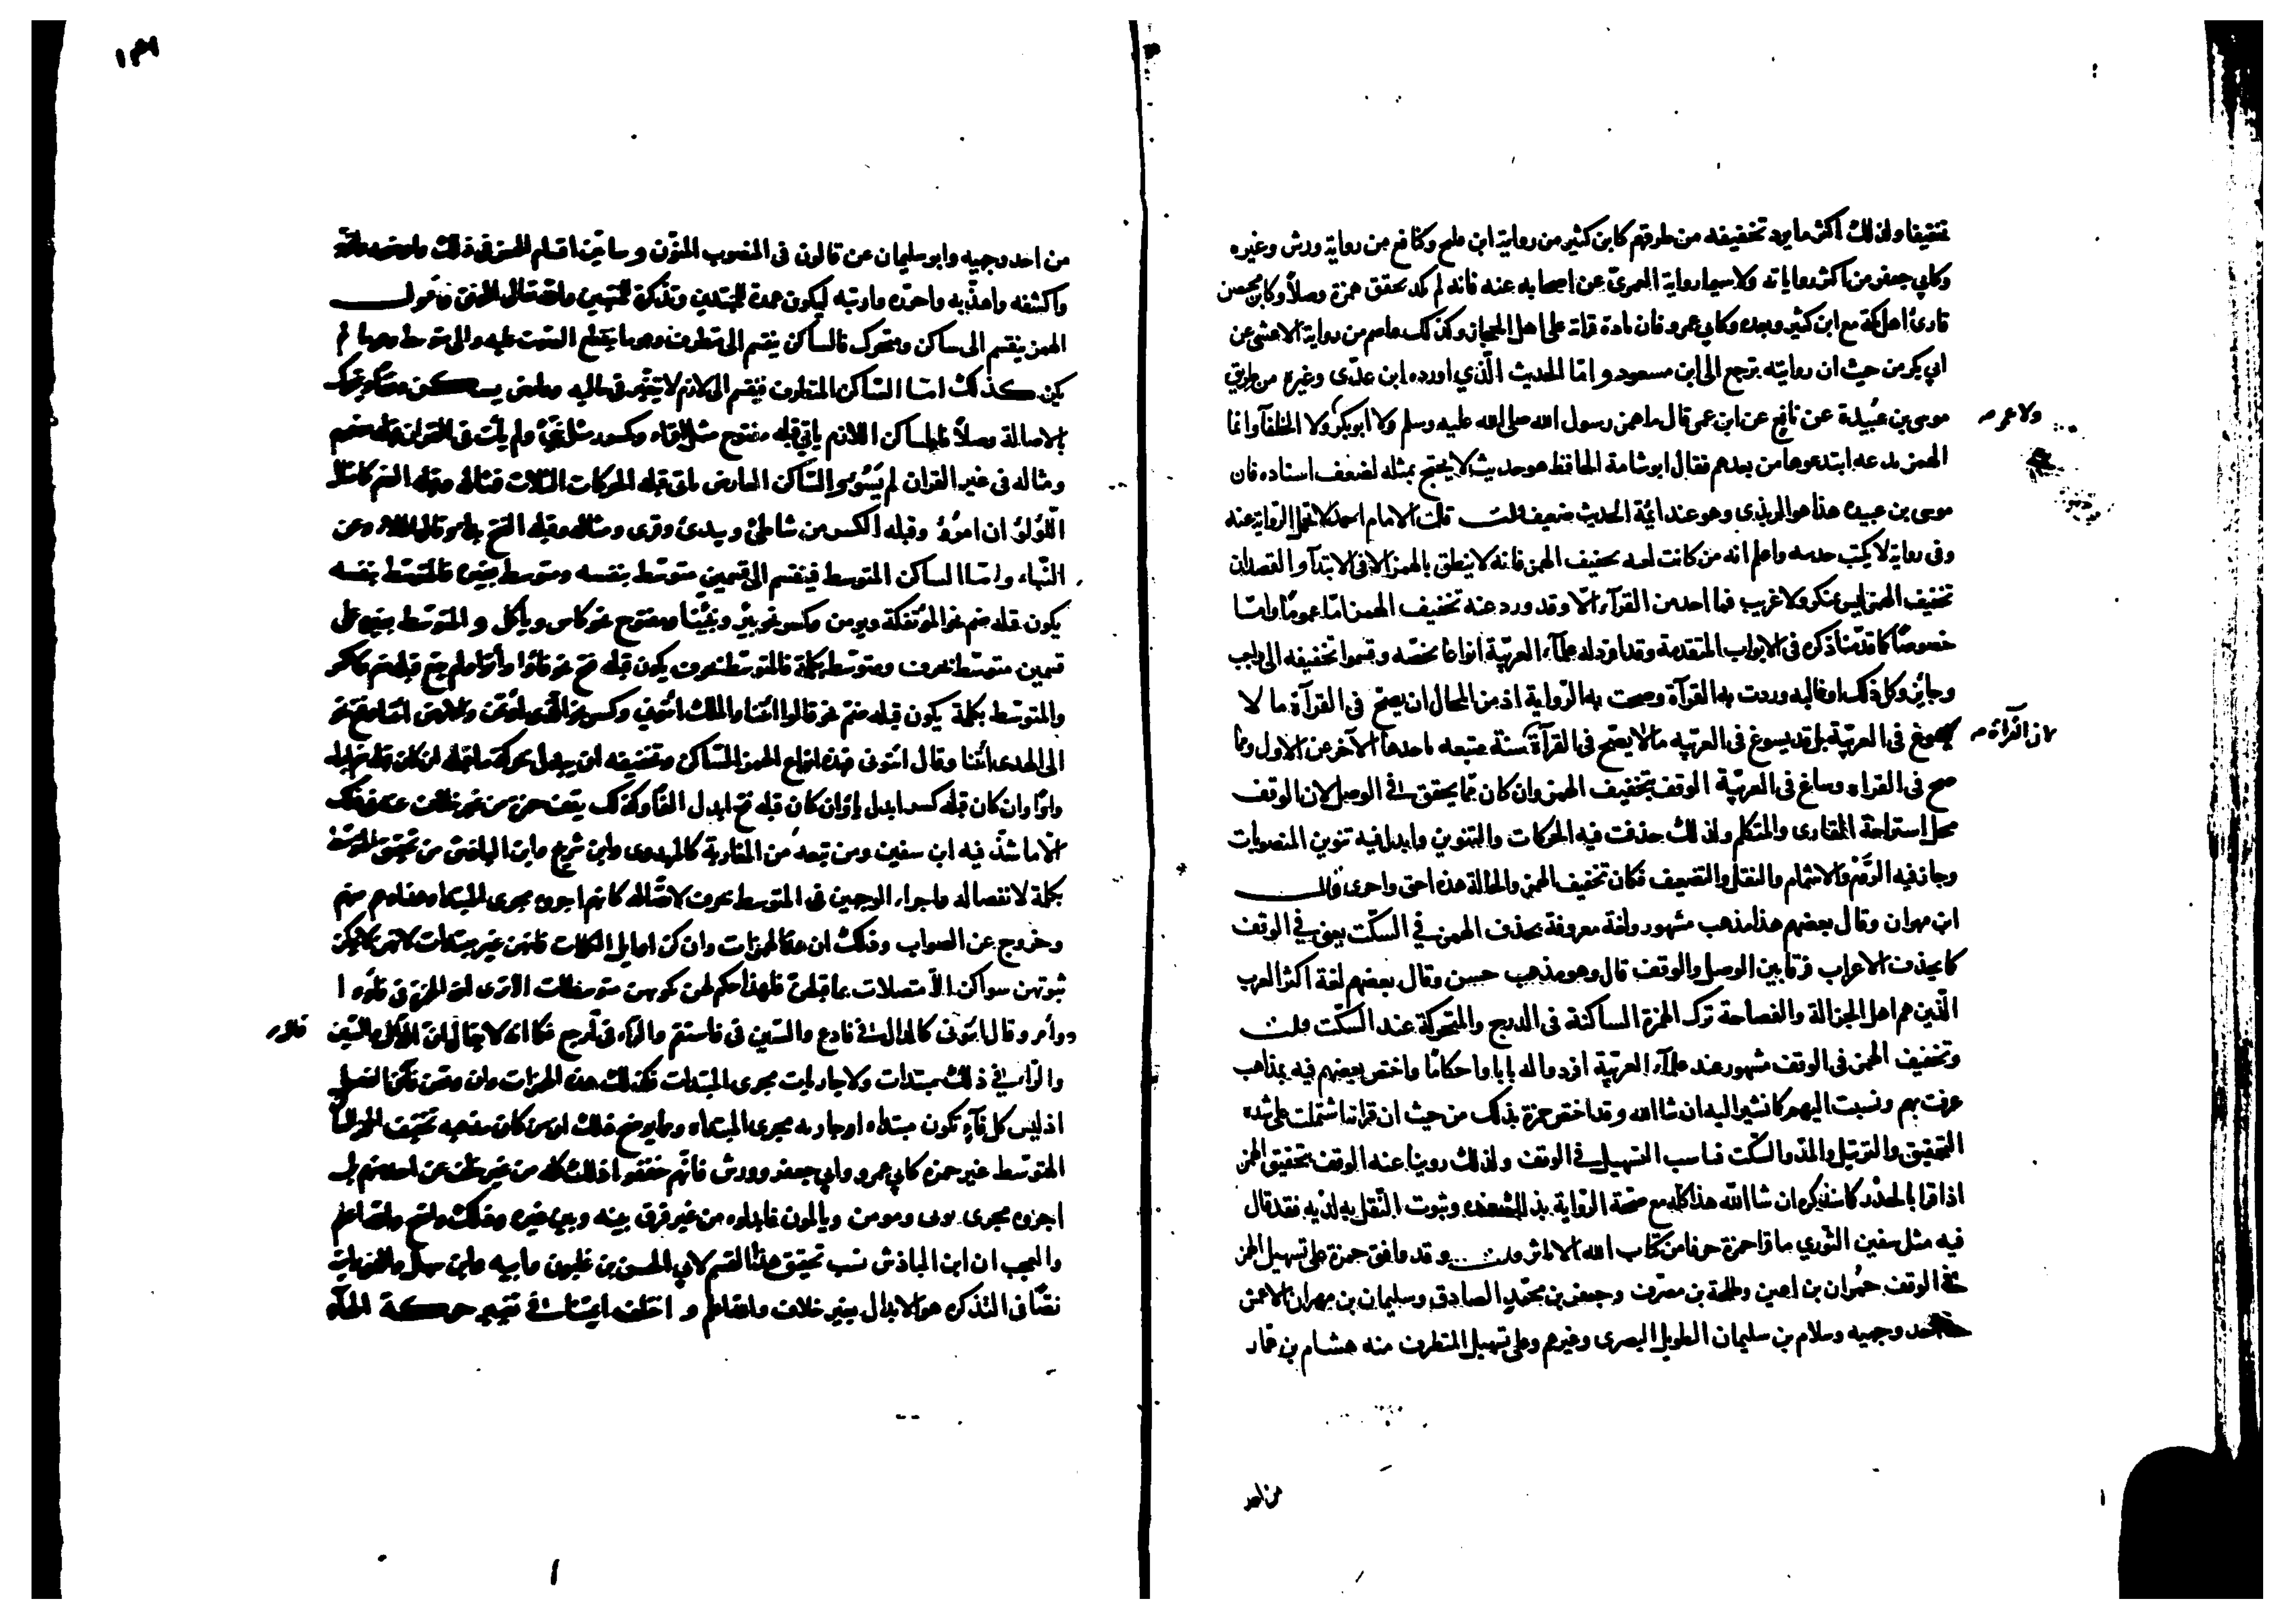 تخفيفا ولذلك اكثر ما يرد تخفيفه من طرقهم كابن كثير من رواية ابن فليح وكنافع من رواية ورش وغيره
وكابي جعفر من اكثر رواياته ولا سيما رواية العمرى عن اصحابه عنه فانه لم يكد يحقق همزة وصلاً وكابن محيصن
قارئ اهل مكة مع ابن كثير وبعده وكابي عمرو فان مادة قراته على اهل الحجاز وكذلك عاصم من رواية الاعشى عن
ابي بكر من حيث ان روايته ترجع الى ابن مسعود واما الحديث الّذي اورده ابن عدّى وغيره من طريق
موسى بن عُبيدة عن نافع عن ابن عمر قال ما همز رسول الله صلى الله عليه وسلم ولا ابو بكر ولا الخلفآ وانما
ولا عمر صـ
الهمز بدعه ابتدعوها من بعدهم فقال ابو شامة الحافظ هو حديث لا يحتج بمثله لضعف اسناده فان
موسى بن عبيده هذا هو الربذى وهو عند ائمة الحديث ضعيف قلت قال الامام احمد لا تحل الرواية عنه
وفى رواية لا يكتب حديثه واعلم انه من كانت لغته تخفيف الهمز فانه لا ينطق بالهمز الا فى الابتدآ والقصد ان
تخفيف الهمز ليس بمنكر ولا غريب فما احد من القرآء الّا وقد ورد عنه تخفيف الهمز امّا عمومًا وامّا
خصوصًا كما قدّمنا ذكره فى الابواب المتقدمة وقد افرد له علمآء العربيّة انواعا تخصّه وقسموا تخفيفه الى واجب
وجائز وكل ذلك او غالبه وردت به القرآة وصحت به الرّواية اذ من المحال ان يصحّ فى القرآة ما لا
يسوغ فى العربيّة بل قد يسوغ فى العربيّه ما لا يصح فى القرآة سنة متبعه ياخذها الآخر عن الاول ومما
لان القرآة صـ
صح فى القراءه وساغ فى العربيّة الوقف بتخفيف الهمز وان كان مما يحقق فى الوصل لان الوقف
محل استراحة القارى والمتكلم ولذلك حذفت فيه الحركات والتنوين وابدل فيه تنوين المنصوبات
وجاز فيه الرَّوْم والاشمام والنقل والتضعيف فكان تخفيف الهمز والحالة هذه احق واحرى قال
ابن مهران وقال بعضهم هذا مذهب مشهور ولغة معروفة يحذف الهمز فى السكت يعنى فى الوقف
كما يحذف الاعراب فرقا بين الوصل والوقف قال وهو مذهب حسن وقال بعضهم لغة اكثر العرب
الّذين هم اهل الجزالة والفصاحة ترك الهمزة الساكنة فى الدرج والمتحركة عند السكت قلت
وتخفيف الهمز فى الوقف مشهور عند علمآء العربيّة افردوا له بابا واحكامًا واختص بعضهم فيه بمذاهب
عرفت بهم ونسبت اليهم كما نشير اليه ان شا الله وقد اختص حمزة بذلك من حيث ان قراته اشتملت على شدة
التحقيق والترتيل والمد والسكت فناسب التسهيل فى الوقف ولذلك روينا عنه الوقف بتحقيق الهمز
اذا قرا بالحدر كما سنذكره ان شا الله هذا كله مع صحة الرّواية بذلك عنده وثبوت النقل به لديه فقد قال
فيه مثل سفين الثوري ما قرا حمزة حرفا من كتاب الله الا باثر قلت وقد وافق حمزة على تسهيل الهمز
فى الوقف حُمْران بن اعين وطلحة بن مصرف وجعفر بن محمّد الصادق وسليمان بن مهران الاعمش
فى احد وجهيه وسلام بن سليمان الطويل البصرى وغيرهم وعلى تسهيل المتطرف منه هشام بن عمار
من احد
١٣١
من احد وجهيه وابو سليمان عن قالون فى المنصوب المنوّن وسابيّن اقسام الهمز فى ذلك واوضحه
واكشفه واهذّبه واحرّره وارتبه ليكون عمدة للمبتدين وتذكرة للمنتهين والله تعالى الموفق فاقول
الهمز ينقسم الى ساكن ومتحرك فالساكن ينقسم الى متطرف وهو ما ينقطع الصوت عليه والى متوسط وهو ما لم
يكن كذلك امّا السّاكن المتطرف فينقسم الى لازم لا يتغيّر فى حاليه وعارض يسكن وقفا ويتحرك
بالاصالة وصلاً فالساكن اللازم ياتي قبله مفتوح مثل اقراء ومكسور مثل نبّئ ولم يأت فى القران قبله مضموم
ومثاله فى غير القران لم يَسُؤ والسّاكن العارض ياتى قبله الحركات الثلاث فمثاله وقبله الضم كامثال
اللّؤلؤ ان امرؤ وقبله الكسر من شاطئ ويبدئ وقرى ومثاله وقبله الفتح بدأ وقال الملأ وعن
النّباء وامّا الساكن المتوسط فينقسم الى قسمين متوسّط بنفسه ومتوسط بغيره فالمتوسّط بنفسه
يكون قبله ضم نحو المؤتفكة ويومن ومكسور نحو بئر ونبّئنا ومفتوح نحو كاس وياكل والمتوسّط بغيره على
قسمين متوسّط بحرف ومتوسّط بكلمة فالمتوسّط بحرف يكون قبله فتح نحو فاؤا وأتوا ولم يقع قبله ضم ولا كسر
والمتوسّط بكلمة يكون قبله ضم نحو قالوا ائتنا والملك ائتوني وكسر نحو الّذى اؤتمن والارض ائتيا وفتح نحو
الى الهدى ائتنا وقال ائتونى فهذه انواع الهمز السّاكن وتخفيفه ان يبدل بحركة ما قبله ان كان قبله ضم ابدل
واوًا وان كان قبله كسر ابدل ياءً وان كان قبله فتح ابدل الفًا وكذلك يقف حمزة من غير خلاف عنه فى ذلك
الّا ما شذّ فيه ابن سفين ومن تبعه من المغاربة كالمهدوى وابن شريح وابن الباذش من تحقيق المتوسّط
بكلمة لانفصاله واجراء الوجهين فى المتوسط بحرف لاتّصاله كانهم اجروه مجرى المبتدا وهذا وهم منهم
وخروج عن الصواب وذلك ان هذه الهمزات وان كن اوايل الكلمات فانهن غير مبتدات لانهن لا يمكن
ثبوتهن سواكن الّا متصلات بما قبلهن فلهذا حكم لهن بكونهن متوسطات الا ترى ان الهمزة فى فأوو ا
وأمر وقال ائتونى كالدال فى فادع والسّين فى فاستقم والرآء فى قال ارجع فكما انه لا يقال ان الدّال والسّين
والرا فى ذلك مبتدات ولا جاريات مجرى المبتدات فكذلك هذه الهمزات وان وقعن فآء من الفعل
اذ ليس كل فآء تكون مبتداه او جاريه مجرى المبتداه ومما يوضح ذلك ان من كان مذهبه تخفيف الهمز الساكن
المتوسّط غير حمزه كابي عمرو وابي جعفر وورش فانّهم خففوا ذلك كله من غير خلف عن احد منهم بل
اجروه مجرى يوتى ومومن ويالمون فابدلوه من غير فرق بينه وبين غيره وذلك واضح والله اعلم
والعجب ان ابن الباذش نسب تحقيق هذا القسم لابي الحسن بن غلبون وابيه وابن سهل والذى رايت
نصًّا فى التذكره هو الابدال بغير خلاف والله اعلم واختلف ايمتنا فى تغيير حركة الهآء